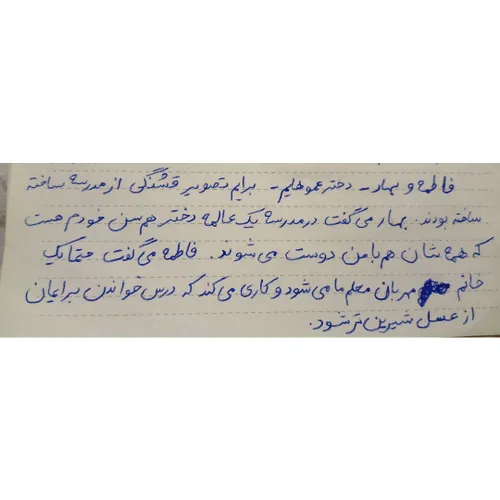 فاطمه و بهار - دختر عموهایم - برایم تصویر قشنگی از مدرسه ساخته
ساخته بودند. بهار می‌گفت در مدرسه یک عالمه دختر هم سن خودم هست
که همه شان هم با من دوست می‌شوند. فاطمه می‌گفت حتما یک
خانم مهربان معلم ما می‌شود و کاری می‌کند که درس خواندن برایمان
از عسل شیرین تر شود.